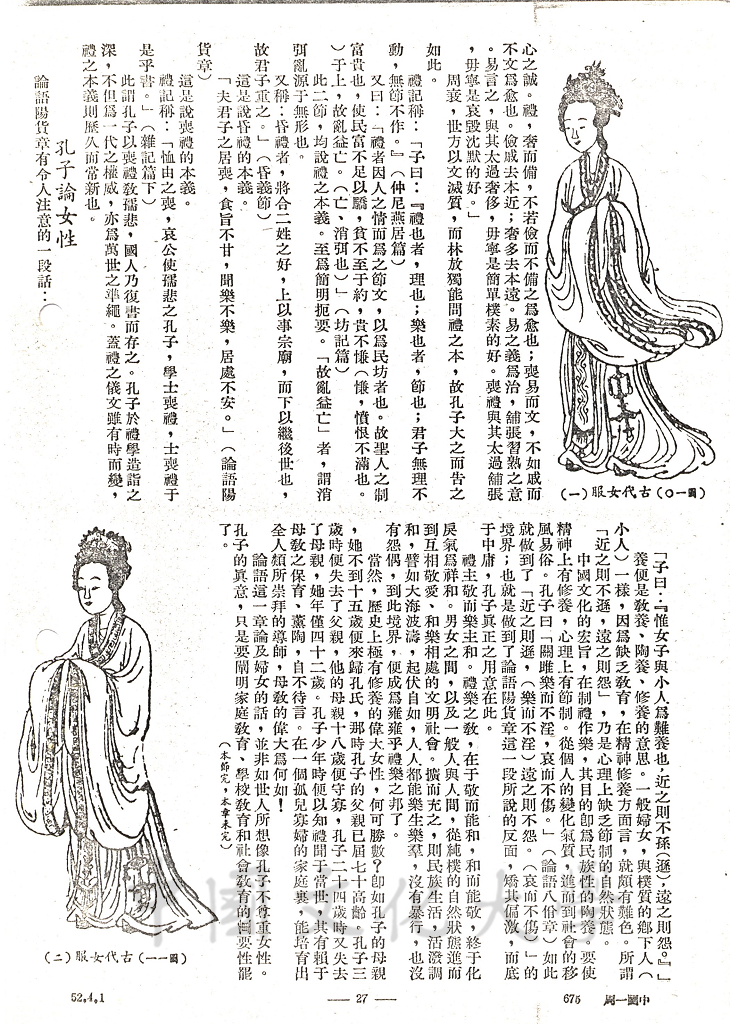 心之誠。禮，奢而備，不若儉而不備之爲愈也；喪易而文，不如戚而
不文爲愈也。儉戚去本近；奢多去本遠。易之義爲治，舖張習熟之意
。易言之，與其太過奢侈，毋寧是簡單樸素的好。喪禮與其太過舖張
，毋寧是哀毀沈默的好。」
周衰，世方以文滅質，而林放獨能問禮之本，故孔子大之而告之
如此。
禮記稱：「子曰：『禮也者，理也；樂也者，節也；君子無理不
動，無節不作。』（仲尼燕居篇）
又曰：「禮者因人之情而爲之節文，以爲民坊者也。故聖人之制
富貴也，使民富不足以驕，貧不至于約，貴不慊（慊，憤恨不滿也。
）于上，故亂益亡。（亡、消弭也）」（坊記篇）
此二節，均說禮之本義。至爲簡明扼要。「故亂益亡」者，謂消
弭亂源于無形也。
又稱：昏禮者，將合二姓之好，上以事宗廟，而下以繼後世也，
故君子重之。」（昏義節）
這是說昏禮的本義。
「夫君子之居喪，食旨不甘，聞樂不樂，居處不安。」（論語陽
貨章）
這是說喪禮的本義。
禮記稱：「恤由之喪，哀公使孺悲之孔子，學士喪禮，士喪禮于
是乎書。」（雜記篇下）
此謂孔子以喪禮敎孺悲，國人乃復書而存之。孔子於禮學造詣之
深，不但爲一代之權威，亦爲萬世之準繩。蓋禮之儀文雖有時而變，
禮之本義則歷久而常新也。
孔子論女性
論語陽貨章有令人注意的一段話：
（圖一○）古代女服（一）
「子曰：『惟女子與小人爲難養也，近之則不孫（遜），遠之則怨。』」
養便是敎養、陶養、修養的意思。一般婦女，與樸質的鄉下人（
小人）一樣，因爲缺乏敎育，在精神修養方面言，就頗有難色。所謂
「近之則不遜，遠之則怨」，乃是心理上缺乏節制的自然狀態。
中國文化的宏旨，在制禮作樂，其目的卽爲民族性的陶養，要使
精神上有修養，心理上有節制。從個人的變化氣質，進而到社會的移
風易俗。孔子曰「關雎樂而不淫，哀而不傷。」（論語八佾章）如此
就做到了「近之則遜，（樂而不淫）遠之則不怨。（哀而不傷）」的
境界；也就是做到了論語陽貨章這一段所說的反面，矯其偏激，而底
于中庸，孔子眞正之用意在此。
禮主敬而樂主和。禮樂之敎，在于敬而能和，和而能敬，終于化
戾氣爲祥和。男女之間，以及一般人與人間，從純樸的自然狀態進而
到互相敬愛、和樂相處的文明社會。擴而充之，則民族生活，活潑調
和，譬如大海波濤，起伏自如，人人都能樂生樂羣，沒有暴行，也沒
有怨偶，到此境界，便成爲雍雍乎禮樂之邦了。
當然，歷史上極有修養的偉大女性，何可勝數？卽如孔子的母親
，她不到十五歲便來歸孔氏，那時孔子的父親已屆七十高齡。孔子三
歲時便失去了父親，他的母親十八歲便守寡，孔子二十四歲時又失去
了母親，她年僅四十二歲。孔子少年時便以知禮聞于當世，其有賴于
母敎之保育、薰陶，自不待言。在一個孤兒寡婦的家庭裏，能培育出
全人類所崇拜的導師，母敎的偉大爲何如！
論語這一章論及婦女的話，並非如世人所想像孔子不尊重女性。
孔子的眞意，只是要闡明家庭敎育、學校敎育和社會敎育的重要性罷
了。
（本節完，本章未完）
（圖一一）古代女服（二）
中國文化大學
52.4.1
— 27 —
675
中國一周